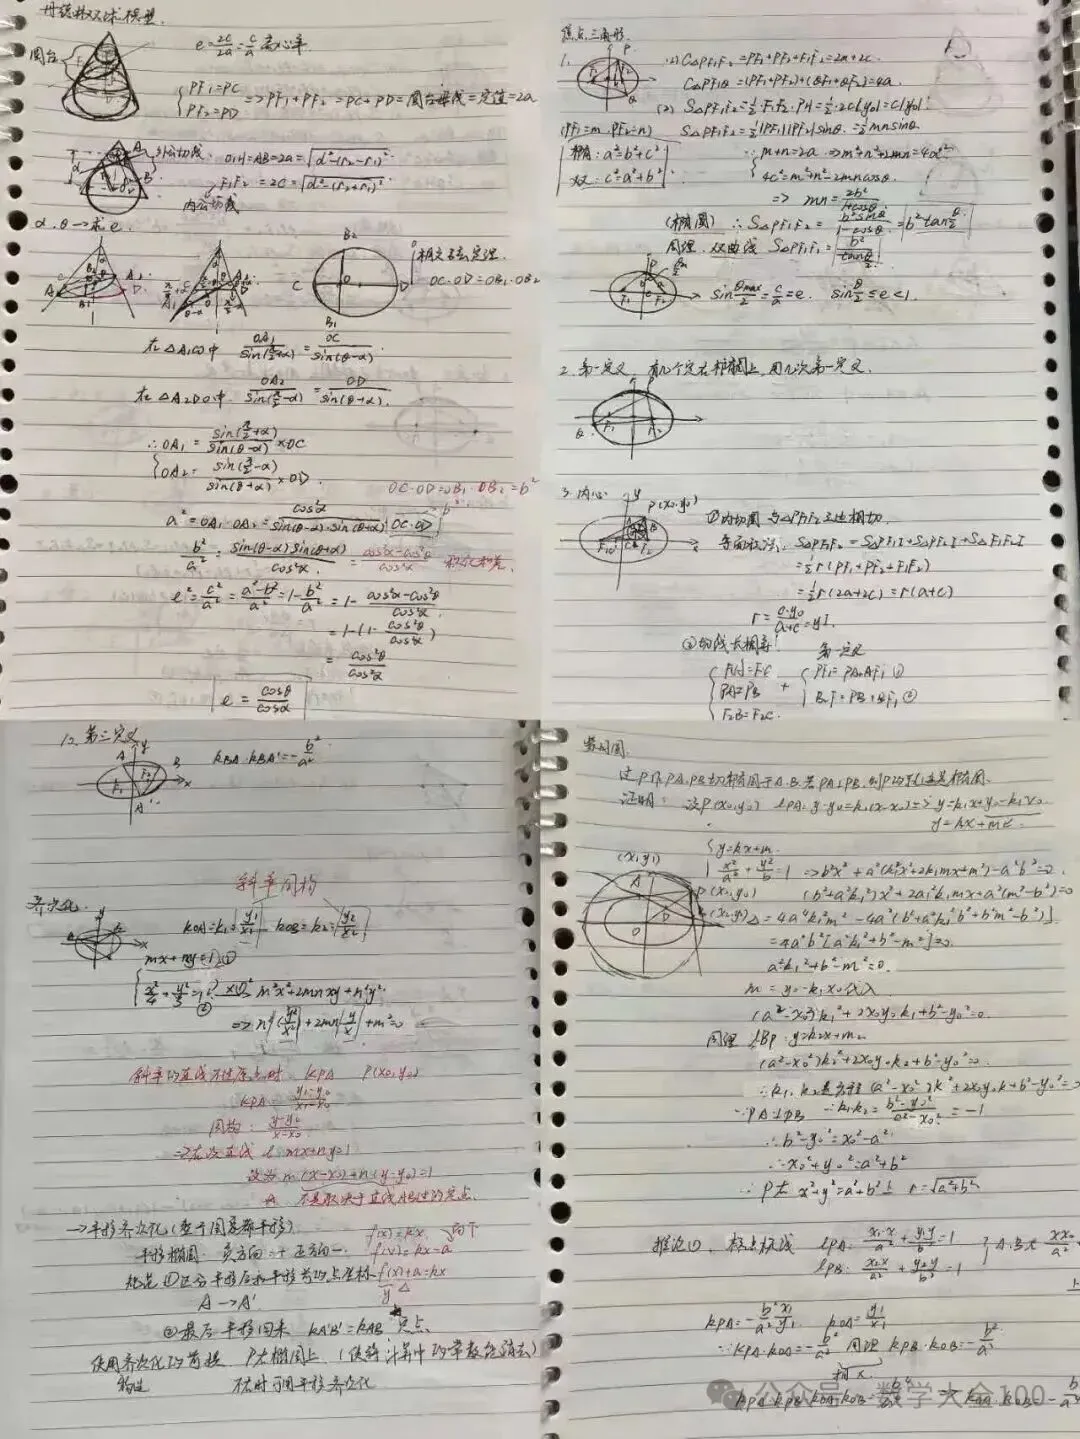 丹德林双球模型.
圆台
e=2c/2a=c/a 离心率.
{PF₁=PC
PF₂=PD
=>PF₁+PF₂=PC+PD=圆台母线=定值=2a
外公切线
内公切线
F₁F₂=2C=√(d²-(r₂+r₁)²)
α.θ→求e.
相交弦定理.
OC·OD=OB₁·OB₂
在△A₁CO中 OA₁/sin(π/2+α)=OC/sin(θ-α)
在△A₂DO中. OA₂/sin(π/2-α)=OD/sin(θ+α).
∴OA₁=sin(π/2+α)/sin(θ-α)×OC
{OA₂=sin(π/2-α)/sin(θ+α)×OD.
OC·OD=OB₁·OB₂=b²
a²=OA₁·OA₂=cos²α/sin(θ-α)·sin(θ+α) OC·OD
b²/a²=sin(θ-α)sin(θ+α)/cos²α=cos²α-cos²θ/cos²α 积化和差.
e²=c²/a²=a²-b²/a²=1-b²/a²=1-cos²α-cos²θ/cos²α
=1-(1-cos²θ/cos²α)
=cos²θ/cos²α
e=cosθ/cosα
焦点三角形.
1.
(1) C△PF₁F₂=PF₁+PF₂+F₁F₂=2a+2c.
C△PF₁Q=(PF₁+PF₂)+(QF₁+QF₂)=4a.
(2) S△PF₁F₂=½·F₁F₂·PH=½·2c|y₀|=c|y₀|
(PF₁=m PF₂=n) S△PF₁F₂=½|PF₁||PF₂|sinθ.=½mnsinθ.
椭:a²=b²+c²
双:c²=a²+b²
∵m+n=2a =>m²+n²+2mn=4a²
{4c²=m²+n²-2mncosθ.
=> mn=2b²/1+cosθ.
同理.双曲线 S△PF₁F₂=b²/tanθ/2
sinθmax/2=c/a=e. sinθ/2≤e<1.
2.第一定义. 有几个点在椭圆上,用几次第一定义.
3.内心
P(x₀·y₀)
①内切圆与△PF₁F₂三边相切.
等面积法: S△PF₁F₂=S△PF₁I+S△PF₂I+S△F₁F₂I
=½r(PF₁+PF₂+F₁F₂)
=½r(2a+2c)=r(a+c)
r=c·y₀/a+c=yI.
②切线长相等 第一定义
PA=PB + PF₁=PA+AF₁ ①
F₂B=F₂C.
12.第三定义
kBA·kBA'=-b²/a²
斜率同构
齐次化.
kOA=k₁=y₁/x₁ kOB=k₂=y₂/x₂
mx+ny=1 ①
{x²/4+y²/3=1 ② m²x²+2mnxy+n²y²
斜率的直线不过原点时. kPA P(x₀,y₀)
kPA=y₁-y₀/x₁-x₀
同构:y-y₀/x-x₀
=>在设直线 l:mx+ny=1
设为m(x-x₀)+n(y-y₀)=1
→平移齐次化(整个图象都平移)
平移椭圆. 负方向=+ 正方向-.
f(x)=kx. 向下
f(x)=kx-a
f(x)+a=kx
规范①区分平移后和平移前的点坐标
A→A'
②最后平移回来 kA'B'=kAB 定点.
使用齐次化的前提. P在椭圆上.(使得计算中的常数能消去)
不在时可用平移齐次化
蒙日圆.
过P作PA,PB切椭圆于A.B.若PA⊥PB.则P的轨迹是椭圆.
证明: 设P(x₀,y₀) lPA:y-y₀=k₁(x-x₀)=>y=k₁x+y₀-k₁x₀.
{y=kx+m.
x²/a²+y²/b²=1 =>b²x²+a²(k₁²x²+2k₁mx+m²)-a²b²=0.
(x₁,y₁)
P(x₀,y₀) (b²+a²k₁²)x²+2a²k₁mx+a²(m²-b²)=0
=4a²b²[a²k₁²+b²-m²]=0.
a²k₁²+b²-m²=0.
m=y₀-k₁x₀代入
(a²-x₀²)k₁²+2x₀y₀k₁+b²-y₀²=0.
同理 lBP:y=k₂x+m₂
(a²-x₀²)k₂²+2x₀y₀k₂+b²-y₀²=0.
∴k₁,k₂是方程(a²-x₀²)k²+2x₀y₀k+b²-y₀²=0
∵PA⊥PB ∴k₁k₂=b²-y₀²/a²-x₀²=-1
∴b²-y₀²=x₀²-a²
∴x₀²+y₀²=a²+b²
∴P在x²+y²=a²+b²上 r=√(a²+b²)
推论①. lPA:x₁x/a²+y₁y/b²=1
lPB:x₂x/a²+y₂y/b²=1
}A.B在 xx₀/a²
kPA=-b²x₁/a²y₁ kOA=y₁/x₁
∴kPA·kOA=-b²/a² 同理kPB·kOB=-b²/a²
相乘
公众号·数学大全100